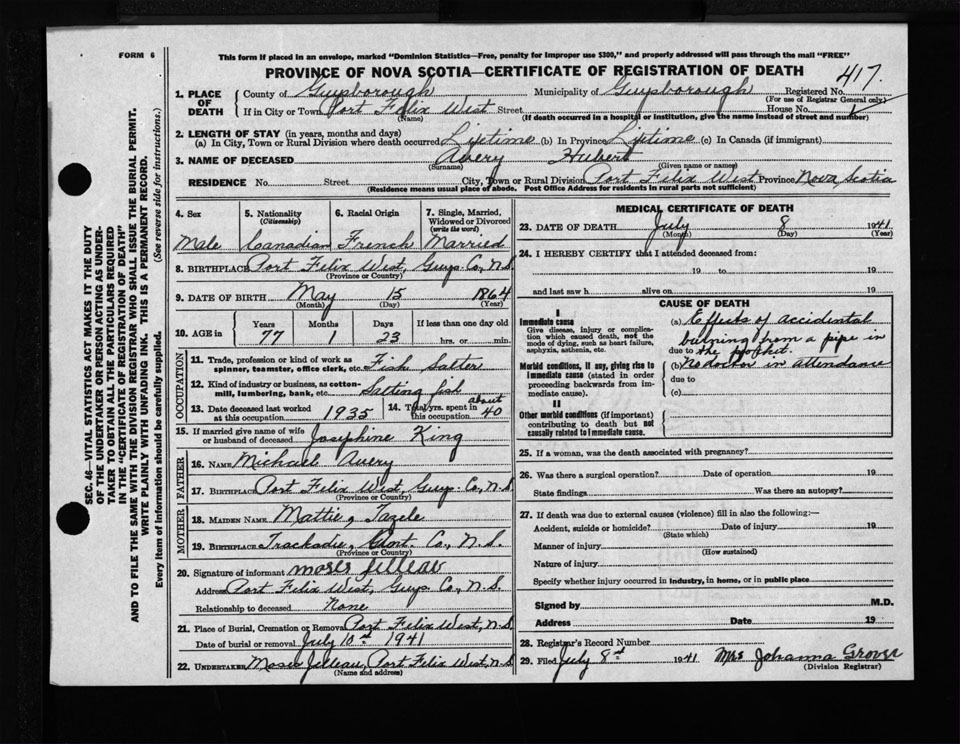 FORM 6
This form if placed in an envelope, marked "Dominion Statistics—Free, penalty for improper use $300," and properly addressed will pass through the mail "FREE"
PROVINCE OF NOVA SCOTIA—CERTIFICATE OF REGISTRATION OF DEATH
417.
1. PLACE OF DEATH
County of Guysborough Municipality of Guysborough Registered No.
(For use of Registrar General only)
If in City or Town Port Felix West Street House No.
(Name) (If death occurred in a hospital or institution, give the name instead of street and number)
2. LENGTH OF STAY (in years, months and days)
(a) In City, Town or Rural Division where death occurred Liftime (b) In Province Liftime (c) In Canada (if immigrant)
3. NAME OF DECEASED Avery Hubert
(Surname) (Given name or names)
RESIDENCE No. Street City, Town or Rural Division Port Felix West Province Nova Scotia
(Residence means usual place of abode. Post Office Address for residents in rural parts not sufficient)
4. Sex 5. Nationality (Citizenship) 6. Racial Origin 7. Single, Married, Widowed or Divorced (write the word)
Male Canadian French Married
8. BIRTHPLACE Port Felix West, Guys. Co, N.S.
(Province or Country)
9. DATE OF BIRTH May 15 1864
(Month) (Day) (Year)
10. AGE in Years Months Days If less than one day old
77 1 23 hrs. or min.
OCCUPATION
11. Trade, profession or kind of work as spinner, teamster, office clerk, etc. Fish Salter
12. Kind of industry or business, as cotton-mill, lumbering, bank, etc. Salting fish
13. Date deceased last worked at this occupation 1935 14. Total yrs. spent in this occupation about 40
15. If married give name of wife or husband of deceased Josephine King
FATHER
16. NAME Michael Avery
17. BIRTHPLACE Port Felix West, Guys. Co, N.S
(Province or Country)
MOTHER
18. MAIDEN NAME Mattie,
19. BIRTHPLACE Trackadie, Co., N.S.
(Province or Country)
20. Signature of informant moses
Address Port Felix West, Guys. Co, N.S.
Relationship to deceased None
21. Place of Burial, Cremation or Removal Port Felix West, N.S
Date of burial or removal July 10th 1941
22. UNDERTAKER Moses Port Felix West, N.S
(Name and address)
MEDICAL CERTIFICATE OF DEATH
23. DATE OF DEATH July 8 1941
(Month) (Day) (Year)
24. I HEREBY CERTIFY that I attended deceased from:
19 to 19
and last saw h alive on 19
CAUSE OF DEATH
I
Immediate cause
Give disease, injury or complication which caused death, not the mode of dying, such as heart failure, asphyxia, asthenia, etc.
(a) Effects of accidental
burning from a pipe in
due to the pocket.
Morbid conditions, if any, giving rise to immediate cause (stated in order proceeding backwards from immediate cause).
(b) No doctor in attendance
due to
(c)
II
Other morbid conditions (if important) contributing to death but not causally related to immediate cause.
25. If a woman, was the death associated with pregnancy?
26. Was there a surgical operation? Date of operation 19
State findings Was there an autopsy?
27. If death was due to external causes (violence) fill in also the following:—
Accident, suicide or homicide? Date of injury 19
(State which)
Manner of injury
(How sustained)
Nature of injury
Specify whether injury occurred in industry, in home, or in public place
Signed by M.D.
Address Date 19
28. Registrar's Record Number
29. Filed July 8 1941 Mrs Johanna Grover
(Division Registrar)
SEC. 46—VITAL STATISTICS ACT MAKES IT THE DUTY
OF THE UNDERTAKER OR PERSON ACTING AS UNDER-
TAKER TO OBTAIN ALL THE PARTICULARS REQUIRED
IN THE "CERTIFICATE OF REGISTRATION OF DEATH"
AND TO FILE THE SAME WITH THE DIVISION REGISTRAR WHO SHALL ISSUE THE BURIAL PERMIT.
WRITE PLAINLY WITH UNFADING INK. THIS IS A PERMANENT RECORD.
Every item of information should be carefully supplied. (See reverse side for instructions.)